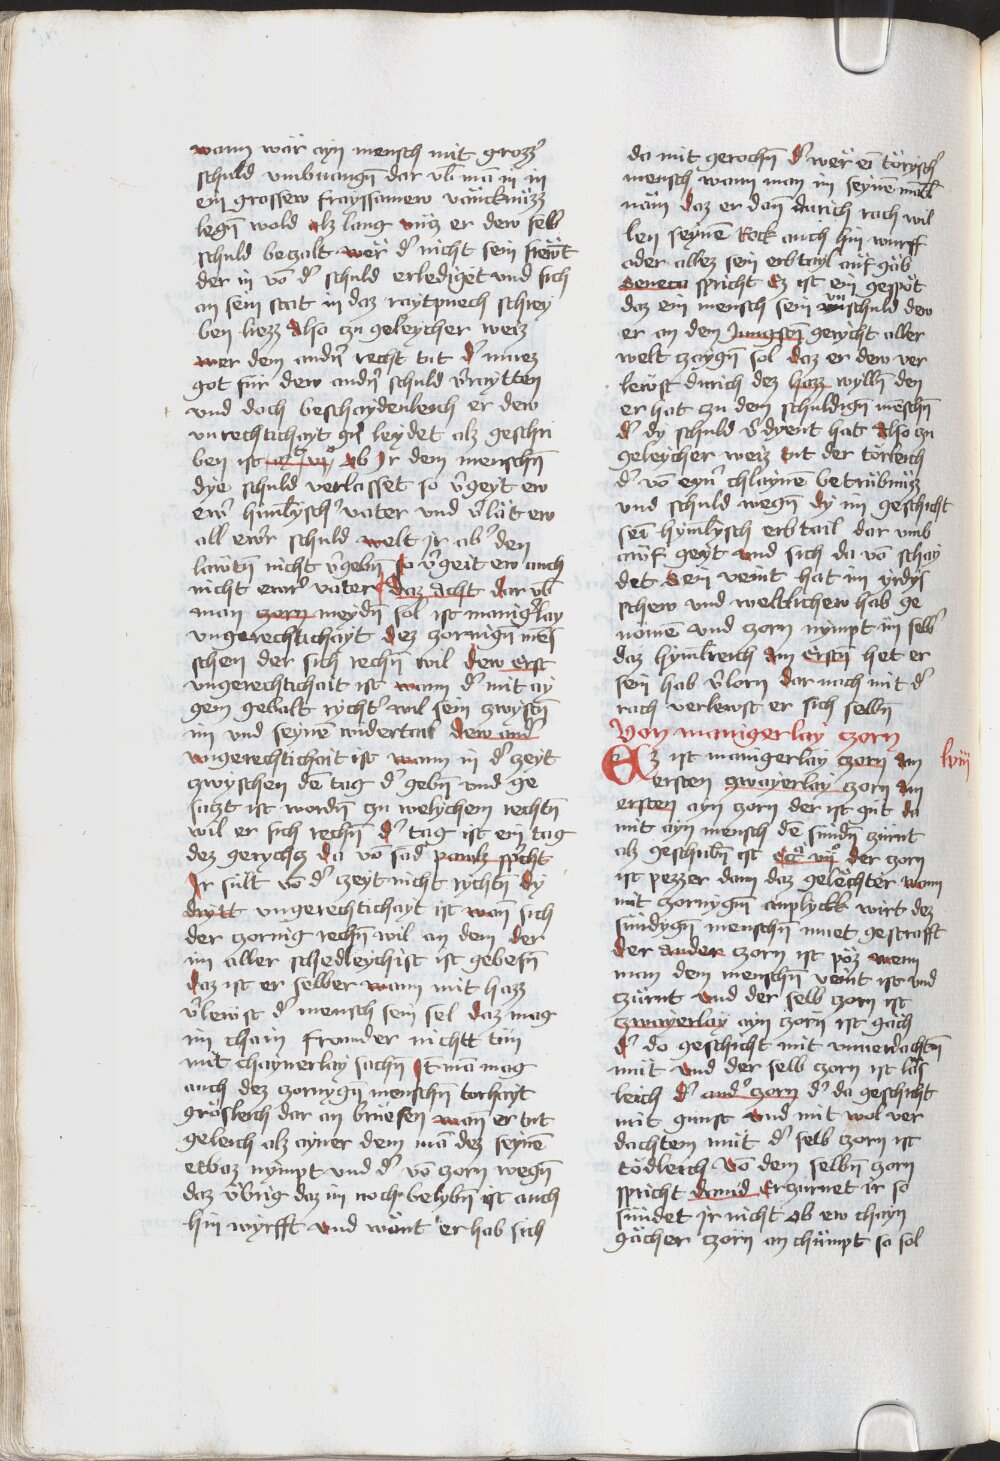 wann wär ayn mensch mit grozzer
schuld vmbuangn̄ dar vb̄ mā in in
ein grossew frayssamew väncknüzz
legn̄ wold alz lang vncz er dew selb
schuld beczalt wer d' nicht sein frewt
der in vō d' schuld erlediget vnd sich
an sein stat in daz raytpuech schrey
ben liezz Also czu geleycher weiz
wer dem andn̄ recht tut d' muez
got für dew andn̄ schuld v'raytten
vnd doch beschaydenleich er dew
vnrechtichayt gn̄ leydet alz geschri
ben ist Ob Jr dem menschn̄
dye schuld verlasset so v'geyt ew
ew' himlysch' vater vnd v'lät ew
all ew'r schuld welt ir ab' den
läwtn̄ nicht v'gebn̄ so v'geit ew auch
nicht ewr' vater daz acht dar vb̄
man zorn meydn̄ sol ist manig'lay
vngerechtichayt dez zornign̄ men
schen der sich rechn̄ wil dew erst
vngerechtichait ist wann d' mit ay
gem gebalt rycht' wil sein zwystn̄
im vnd seynē widertail dew and'
vngerechtichait ist wann in d' zeyt
zwyschen dē tag d' gebn̄ vnd ge
saczt ist wordn̄ zu welychem rechtn̄
wil er sich rechn̄ d' tag ist ein tag
dez gerychcz da vō sand pawlz spricht
Jr sült vō d' czeyt nicht rychtn̄ dy
drytt vngerechtichayt ist wan̄ sich
der czornig rechn̄ wil an dem der
im aller schedleychist ist gebesn̄
daz ist er selber wann mit hazz
v'lewst d' mensch sein sel daz mag
im chain fromder nichtt tün
mit chaynerlay sachn̄ Jt mā mag
auch dez czornygn̄ menschn̄ torhayt
grösleich dar an brüefen wan̄ er tut
geleich alz ayner dem mā dez seynē
etbaz nympt vnd d' vō czorn wegn̄
daz v'brig daz im noch belybn̄ ist auch
hin wyrfft vnd wänt er hab sich
da mit gerochn̄ d' wer ei törysch'
mensch wann man im seynē mātl
näm daz er dan̄ durich rach wil
len seynē Rock auch hin wurff
oder allez sein erbtayl auf gäb
Seneca spricht Ez ist ein gespöt
daz ein mensch sein vnschuld dew
er an dem Jungstn̄ gerycht aller
welt czaygn̄ sol daz er dew ver
lewst durich dez hazz wylln̄ den
er hat czu dem schuldign̄ menschn̄
d' dy schuld v'dyent hat Also czu
geleycher weiz tut der törleich
d' vō eyn' chlaynē betrübnuzz
vnd schuld wegn̄ dy im geschicht
sei hymlysch erbtail dar vmb
auf geyt vnd sich da vō schay
det Sein veint hat im yrdys
schew vnd weltlichew hab ge
nömē vnd czorn nympt im selb'
daz hymlreich Am erstn̄ het er
sein hab v'lorn dar nach mit d'
rach verlewst er sich selbn̄
Von manigerlay czorn
Ez ist manigerlay czorn Am
ersten zwayerlay czorn Am
ersten ayn czorn der ist gut da
mit ayn mensch dē sündn̄ zürnt
alz geschribn̄ ist ecc̄a vij° der czorn
ist pezzer dann daz gelächter wann
mit czornygm̄ anplyckk wirt dez
sündygn̄ menschn̄ muet gestrafft
der ander czorn ist pöz wenn
man dem menschn̄ veint ist vnd
czürnt vnd der selb czorn ist
czwayerlay ayn czorn ist gäch
d' do geschicht mit vnuerdachtn̄
müt vnd der selb czorn ist läs
leich d' and' czorn d' da geschicht
mit gunst vnd mit wol ver
dachtem müt d' selb czorn ist
tödleich Vō dem selbn̄ czorn
spricht dauid Erczürnet ir so
sündet ir nicht Ob ew chayn
gächer czorn an chümpt so sol
lviij